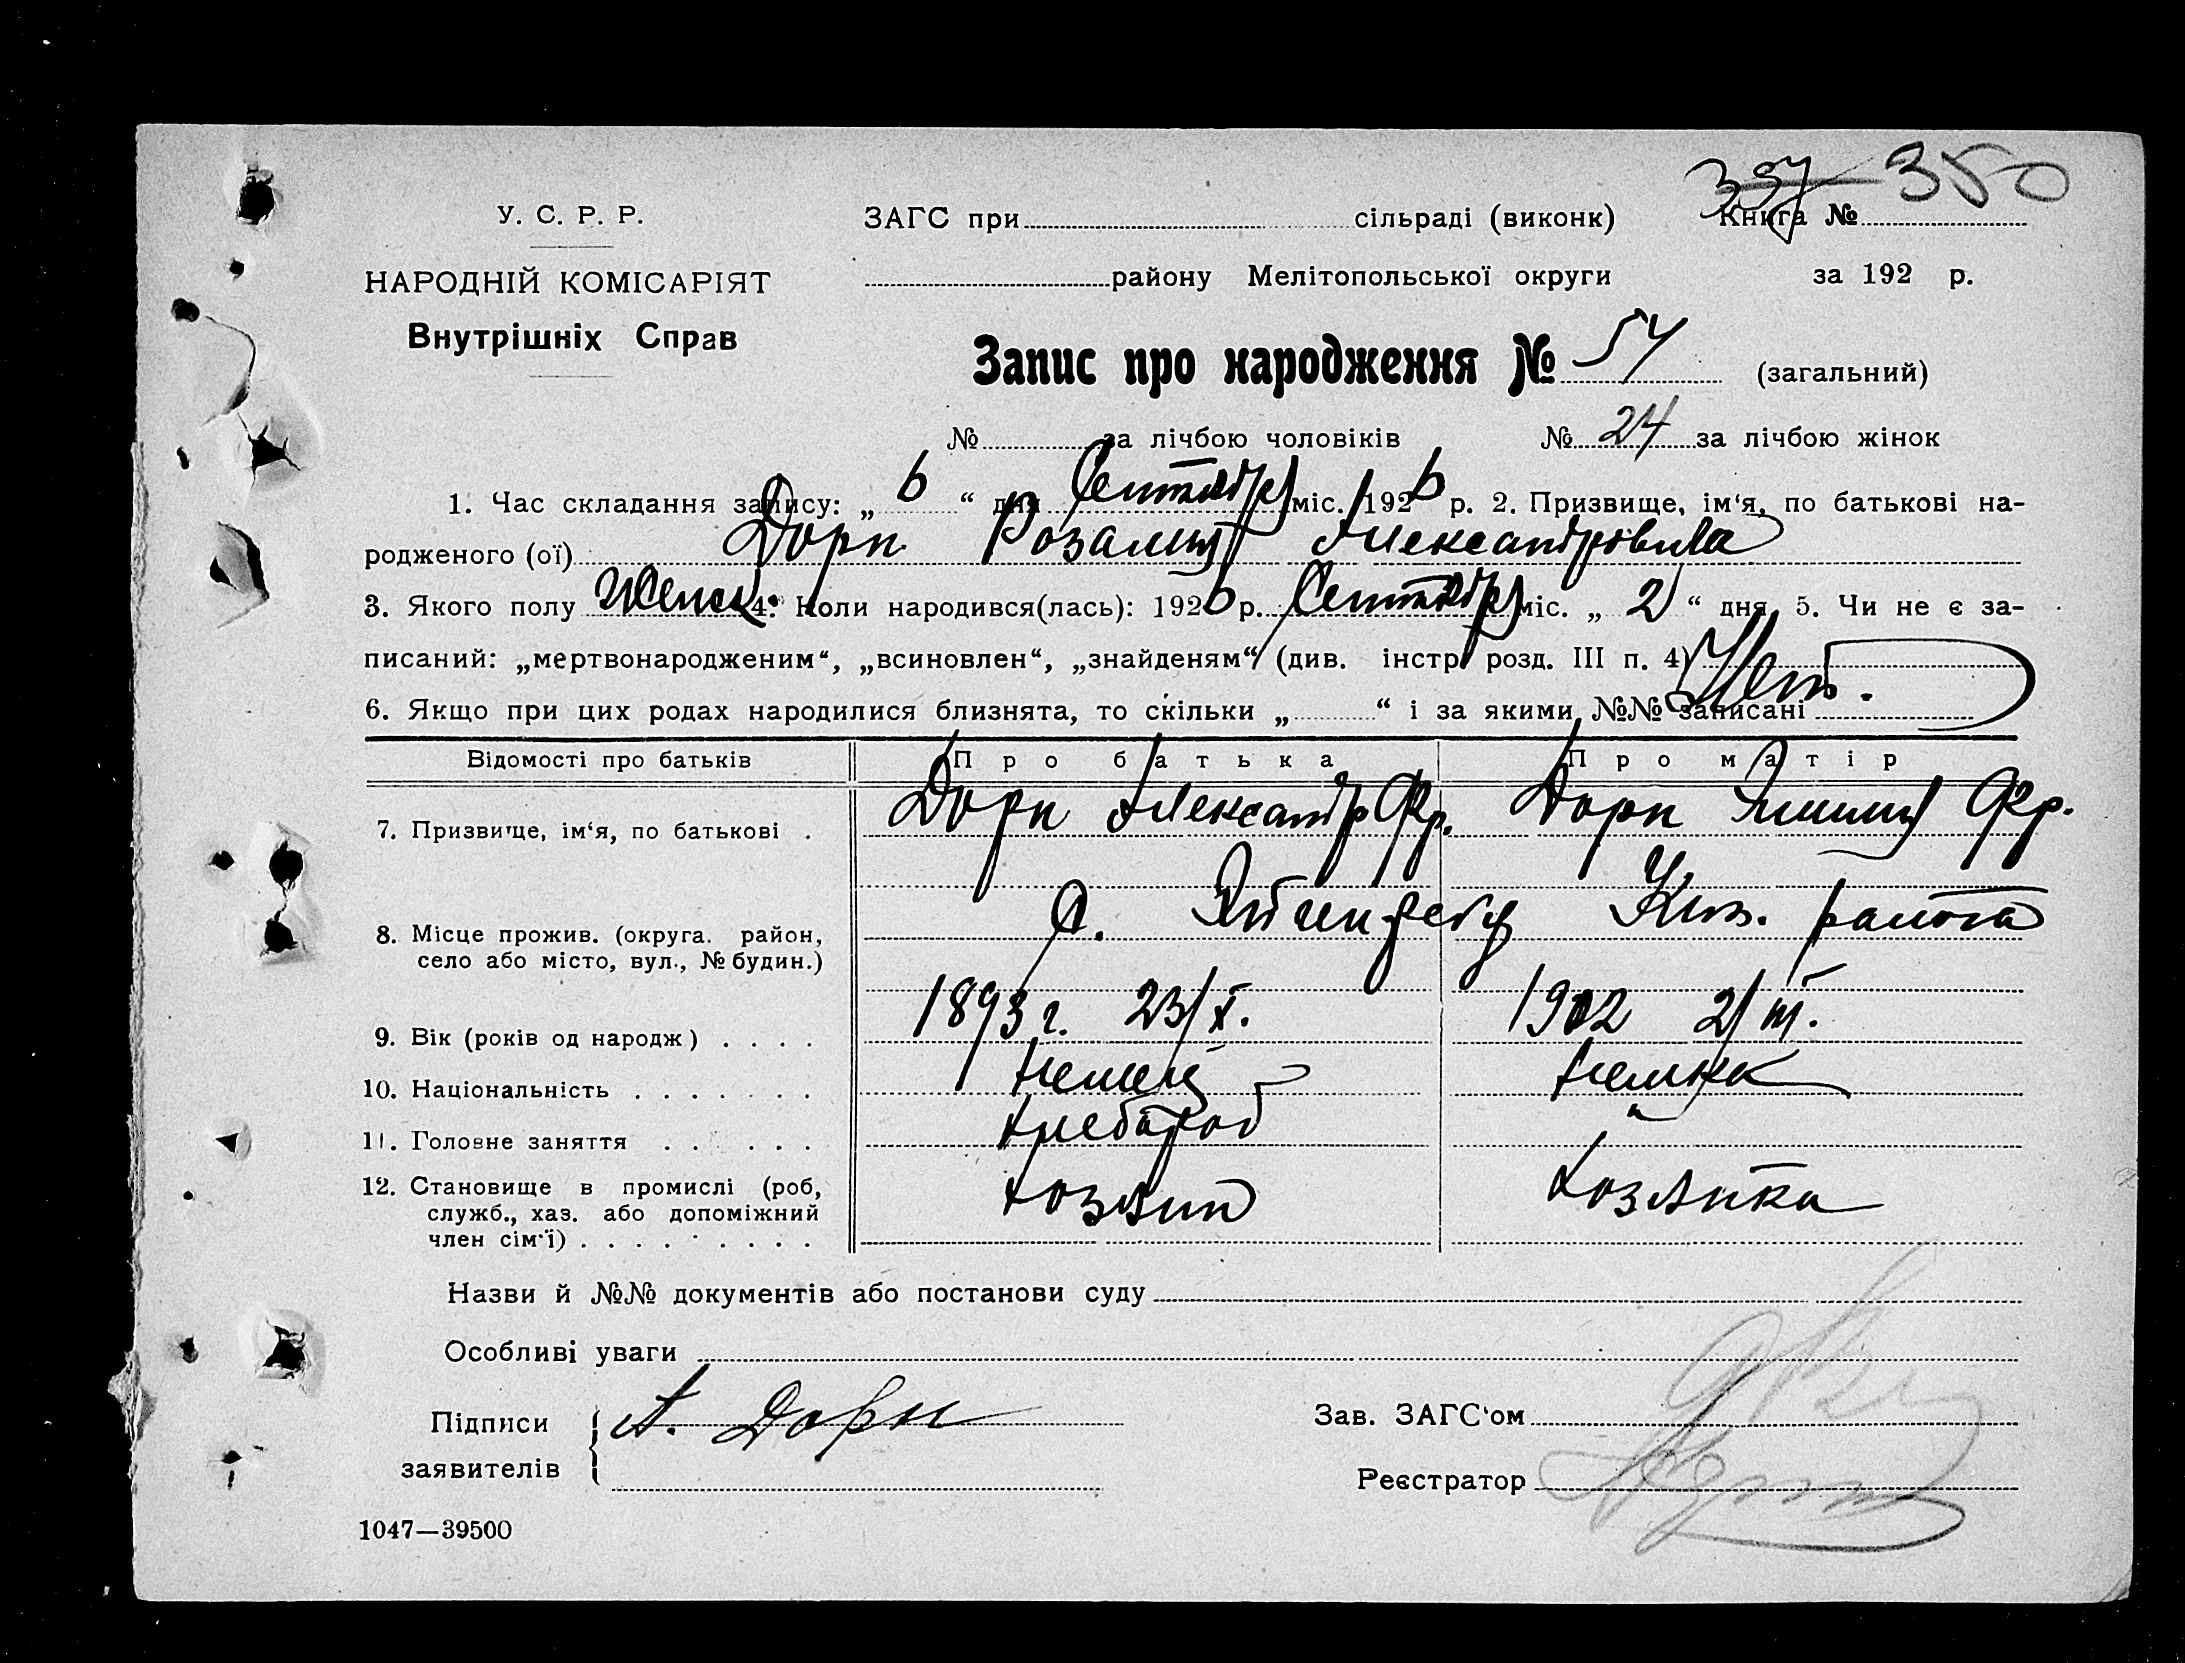 397 350
У. С. Р. Р.
ЗАГС при сільраді (виконк) Книга №
НАРОДНІЙ КОМІСАРІЯТ
району Мелітопольської округи за 192 р.
Внутрішніх Справ
Запис про народження № 54 (загальний)
№ за лічбою чоловіків № 24 за лічбою жінок
1. Час складання запису: „ 6 “ дня Сентября міс. 1926 р. 2. Призвище, ім‘я, по батькові на-
родженого (ої) Дорн Розалия Александровна
3. Якого полу Женск. 4. Коли народився(лась): 1926 р. Сентября міс. „ 2 “ дня 5. Чи не є за-
писаний: „мертвонародженим“, „всиновлен“, „знайденям“ (див. інстр. розд. III п. 4) Нет.
6. Якщо при цих родах народилися близнята, то скільки „ “ і за якими №№ записані
Відомості про батьків Про батька Про матір
7. Призвище, ім‘я, по батькові . Дорн Александр Фр. Дорн Эмилия Фр.
8. Місце прожив. (округа. район, село або місто, вул., № будин.) с.
9. Вік (років од народж) . . . . 1893 г. 23/X. 1902 2/III.
10. Національність . . . . . . . Немец Немка
11. Головне заняття . . . . . . Хлебороб "
12. Становище в промислі (роб, служб., хаз. або допоміжний член сім‘ї) . . . . . . . . . Хозяин Хозяйка
Назви й №№ документів або постанови суду
Особливі уваги
Підписи заявителів А. Дорн
Зав. ЗАГС‘ом
Реєстратор
1047—39500